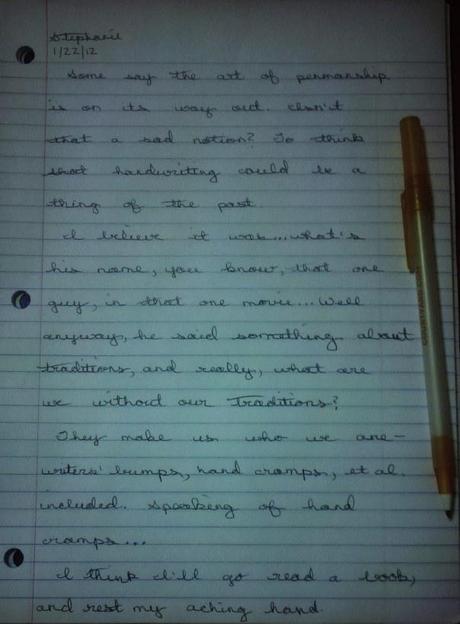 Stephanie
1/22/12
Some say the art of penmanship
is on its way out. Isn't
that a sad notion? To think
that handwriting could be a
thing of the past.
I believe it was...what's
his name, you know, that one
guy, in that one movie... Well
anyway, he said something about
traditions, and really, what are
we without our traditions?
They make us who we are-
writers' bumps, hand cramps, et al.
included. Speaking of hand
cramps...
I think I'll go read a book,
and rest my aching hand.